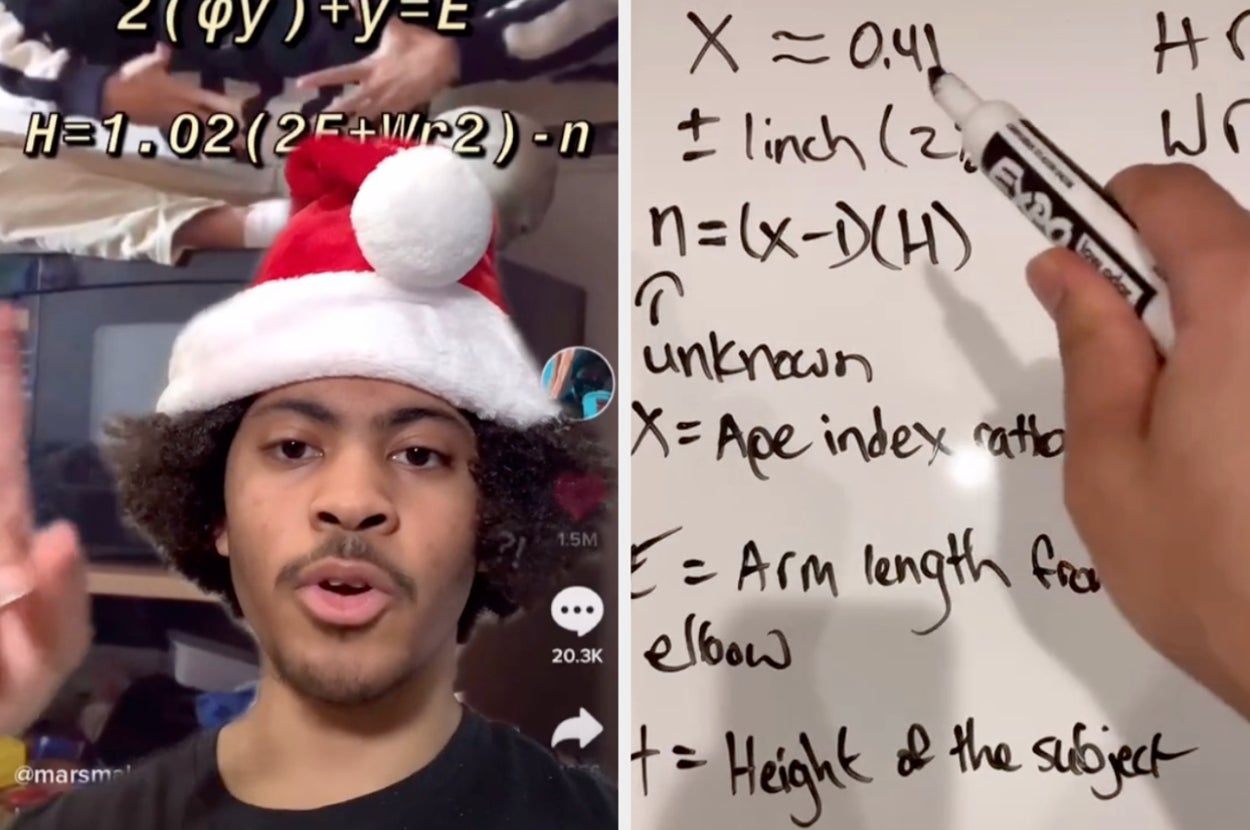 2(φy)+y=E
H=1.02(2E+Wr2)-n
1.5M
20.3K
X ≈ 0.41
± 1inch (2.
n=(x-1)(H)
unknown
X= Ape index ratio
= Arm length
elbow
= Height of the subject
H
Wr
EXPO
low odor